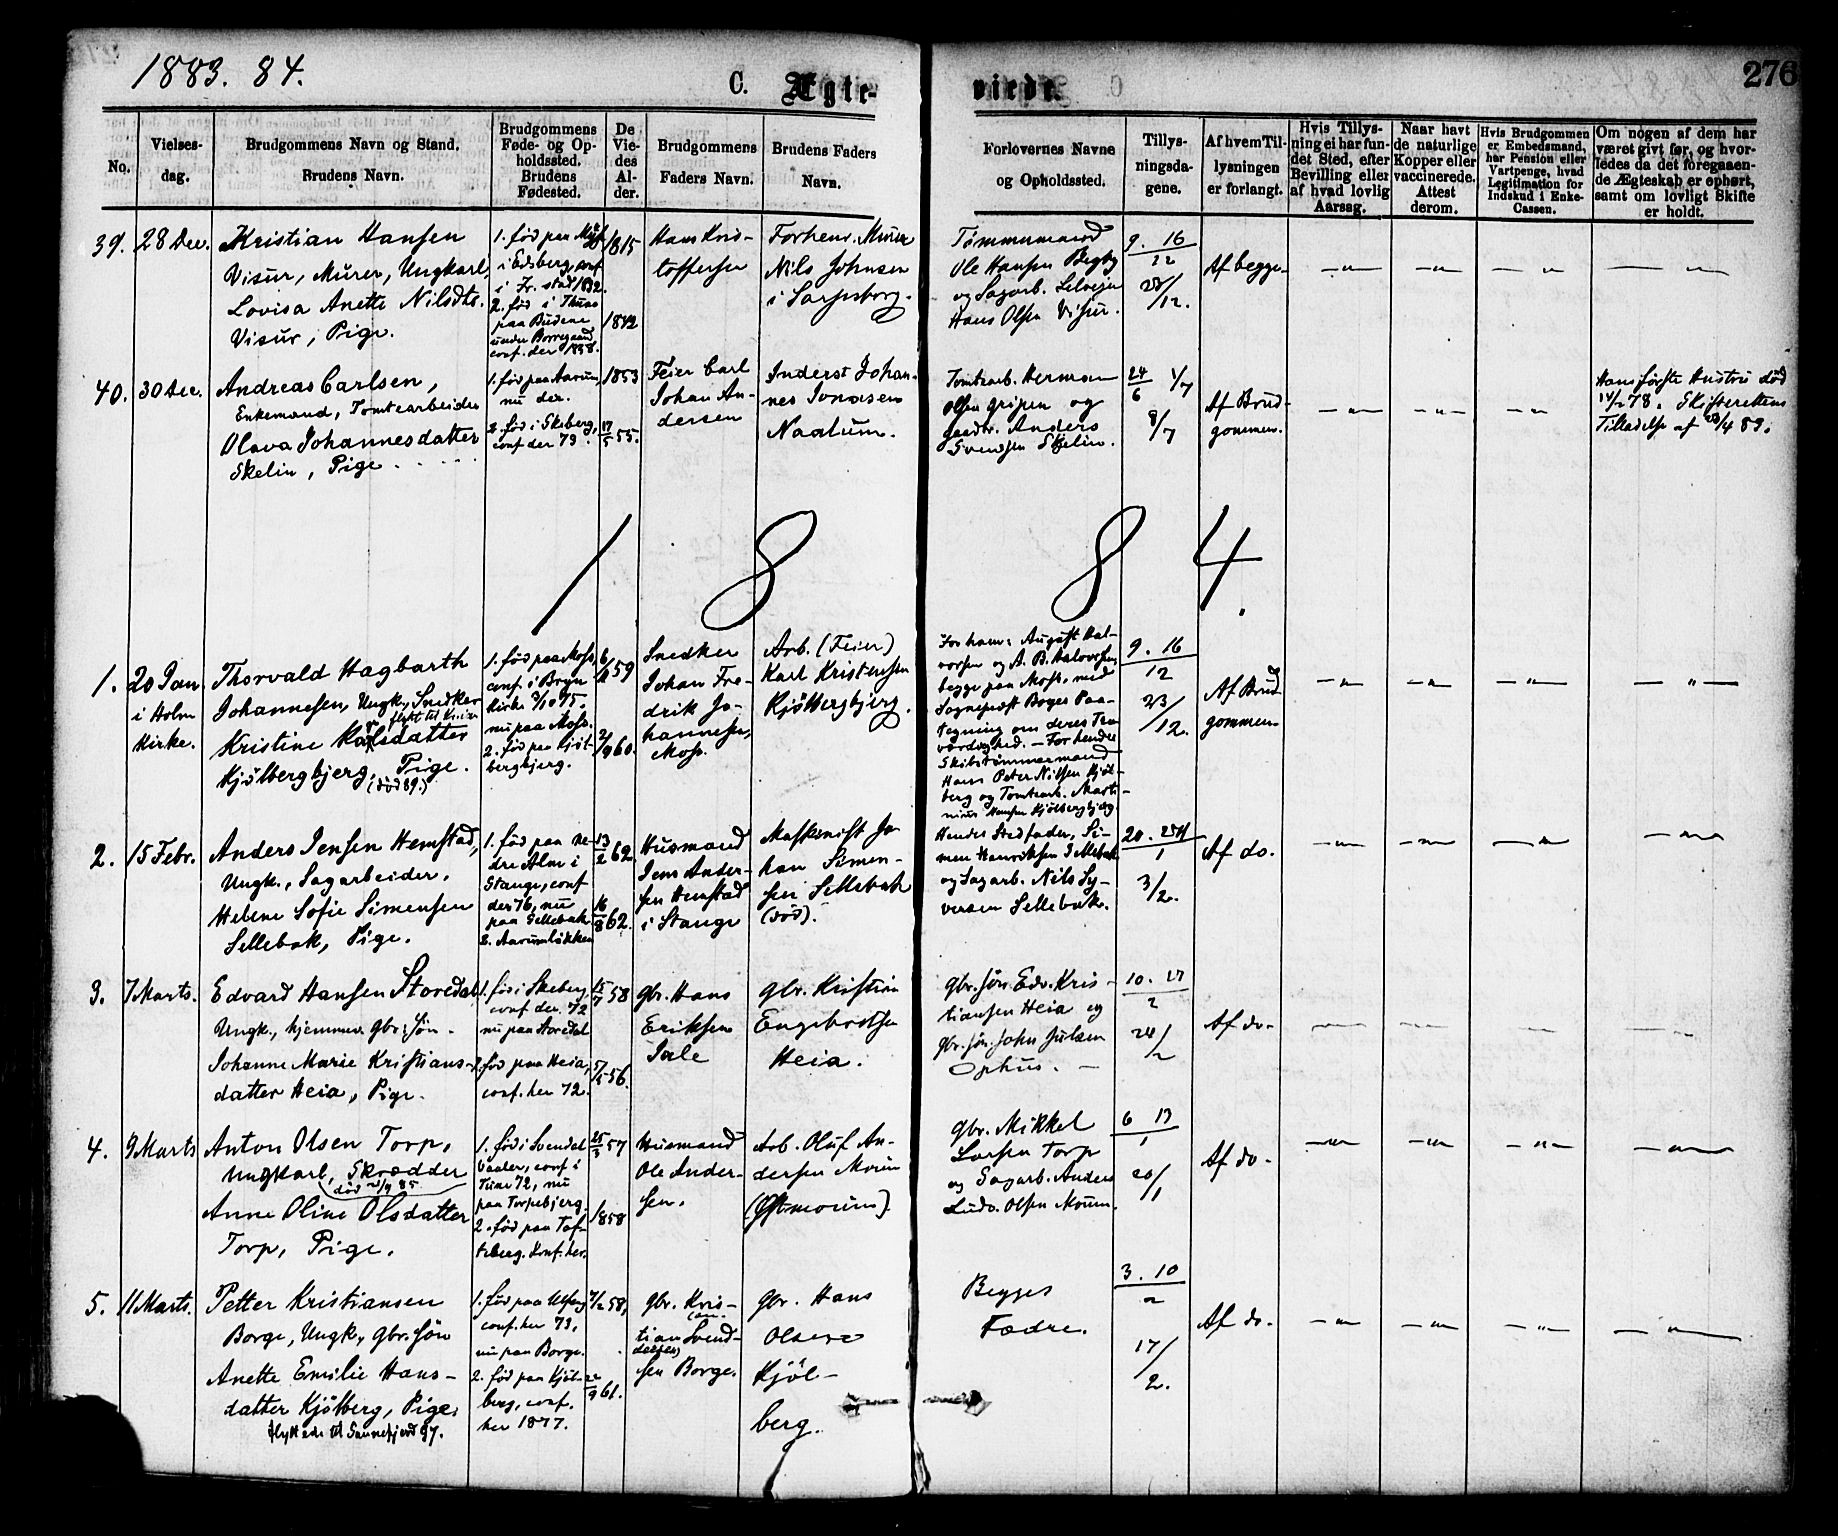 1883. 84.
C. Ægte-
viede.
276
No.
Vielses-
dag.
Brudgommens Navn og Stand.
Brudens Navn.
Brudgommens
Føde- og Op-
holdssted.
Brudens
Fødested.
De
Vie-
des
Al-
der.
Brudgommens
Faders Navn.
Brudens Faders
Navn.
Forlovernes Navne
og Opholdssted.
Tillys-
ningsda-
gene.
Af hvem Til-
lysningen
er forlangt.
Hvis Tillys-
ning ei har fun-
det Sted, efter
Bevilling eller
af hvad lovlig
Aarsag.
Naar havt
de naturlige
Kopper eller
vaccinerede.
Attest
derom.
Hvis Brudgommen
er Embedsmand,
har Pension eller
Vartpenge, hvad
Legitimation for
Indskud i Enke-
Cassen.
Om nogen af dem har
været givt før, og hvor-
ledes da det foregaaen-
de Ægteskab er ophørt,
samt om lovligt Skifte
er holdt.
39. 28 Dec.
Kristian Hansen
Visur, Murer, Ungkarl,
Lovisa Anette Nilsdtr.
Visur, Pige.
1. fød paa
i Edsberg, conf.
i Fr. stad 1832.
2. fød i Thune
paa Budene
under Borregaard
conf. der 1858.
1815
1842
Hans Kris-
toffersen
Forhenv. Murer
Nils Johnsen
i Sarpsborg.
Tømmermand
Ole Hansen Begby
og Sagarb.
Hans Olsen Visur.
9. 16
12
23/12.
Af begge
40. 30 Dec.
Andreas Carlsen,
Enkemand, Tomtearbeider
Olava Johannesdatter
Skelin, Pige
1. fød paa Aarum,
nu der.
2. fød i Skeberg,
conf der 73.
1853
17/5 55.
Feier Carl
Johan An-
dersen
Inderst Johan-
nes Jonasen
Navlum.
Tomtearb. Herman
Olsen Gripen og
Gaardbr. Anders
Svendsen Skelin.
24/6 1/7
8/7
Af Brud-
gommen.
Hans første Hustru død
78. Skifterettens
Tilladelse af 83.
1 8 8 4.
1. 20 Jan.
i Holm
Kirke.
Thorvald Hagbarth
Johannesen, Ungk., Snedker
Kristine Karlsdatter
Kjølbergbjerg, Pige.
(død 89.)
1. fød paa Moss,
conf. i Bryn
Kirke 3/10 75.
nu paa Moss.
2. fød paa Kjøl-
bergbjerg.
59
60.
Snedker
Johan Fre-
drik Jo-
hannesen,
Moss.
Arb. (Feier)
Karl Kristensen
Kjølbergbjerg.
For ham: August Hal-
vorsen og A. B. Halvorsen,
begge paa Moss, med
Sogneprest Boyes Paa-
tegning om deres Tro
værdighed. - For hende
Skibstømmermand
Hans Peter Nilsen Kjøl-
berg og Tomtearb. Mart-
nius Hansen Kjølbergbjerg.
9. 16
12
23/12.
Af Brud
gommen
2. 15 Febr.
Anders Jensen Hemstad,
Ungk., Sagarbeider.
Helene Sofie Simensen
Sellebak, Pige.
1. fød paa ne-
dre Alm i
Stange, conf
der 76, nu
paa Sellebak
2. Aarumløkken
13/2 62.
16/8 62.
Husmand
Jens Ander-
sen Hemstad
i Stange
Maskinist Jo-
han Simen-
sen Sellebak
(død).
Hendes Stedfader, Si-
men Henriksen Sellebak
og Sagarb. Nils Sy-
versen Sellebak.
20. 27
1
3/2.
Af do.
3. 7 Marts.
Edvard Hansen Storedal,
Ungk., hjemmev. Gbr. søn.
Johanne Marie Kristians-
datter Heia, Pige.
1. fød i Skeberg
conf der. 72
nu paa Storedal
2. fød paa Heia,
conf. her 72.
15/7 58
5/5 56.
Gbr. Hans
Eriksen
Gbr. Kristian
Engebretsen
Heia.
Gbr. søn Edv. Kris-
tiansen Heia og
Gbr. søn John Julsen
Ophus.
10. 17
2
24/2
Af do.
4. 9 Marts
Anton Olsen Torp,
Ungkarl, Skrædder
død 85
Anne Oline Olsdatter
Torp, Pige.
1. fød i Svendal
Vaaler, conf i
Tune 72, nu
paa Torpebjerg.
2. fød paa Tof-
teberg. Konf. her.
25/5 57
1858
Husmand
Ole Ander-
sen.
Arb. Oluf An-
dersen Moum
(Østmoum).
Gbr. Mikkel
Larsen Torp
og Sagarb. Anders
Ludv. Olsen Moum.
6 13
1
20/1
Af do.
5. 11 Marts.
Petter Kristiansen
Borge, Ungk., Gbr. søn
Anette Emilie Hans-
datter Kjølberg, Pige.
flyttede til Sannefjord 97.
1. fød paa
conf. her 73.
nu paa Borge.
2. fød paa Kjøl-
berg, conf.
her 1877.
58,
22/9 61.
Gbr. Kris-
tian Svend-
sen Borge.
Gbr. Hans
Olsen
Kjøl-
berg.
Begges
Fædre.
3. 10
2
17/2.
Af do.